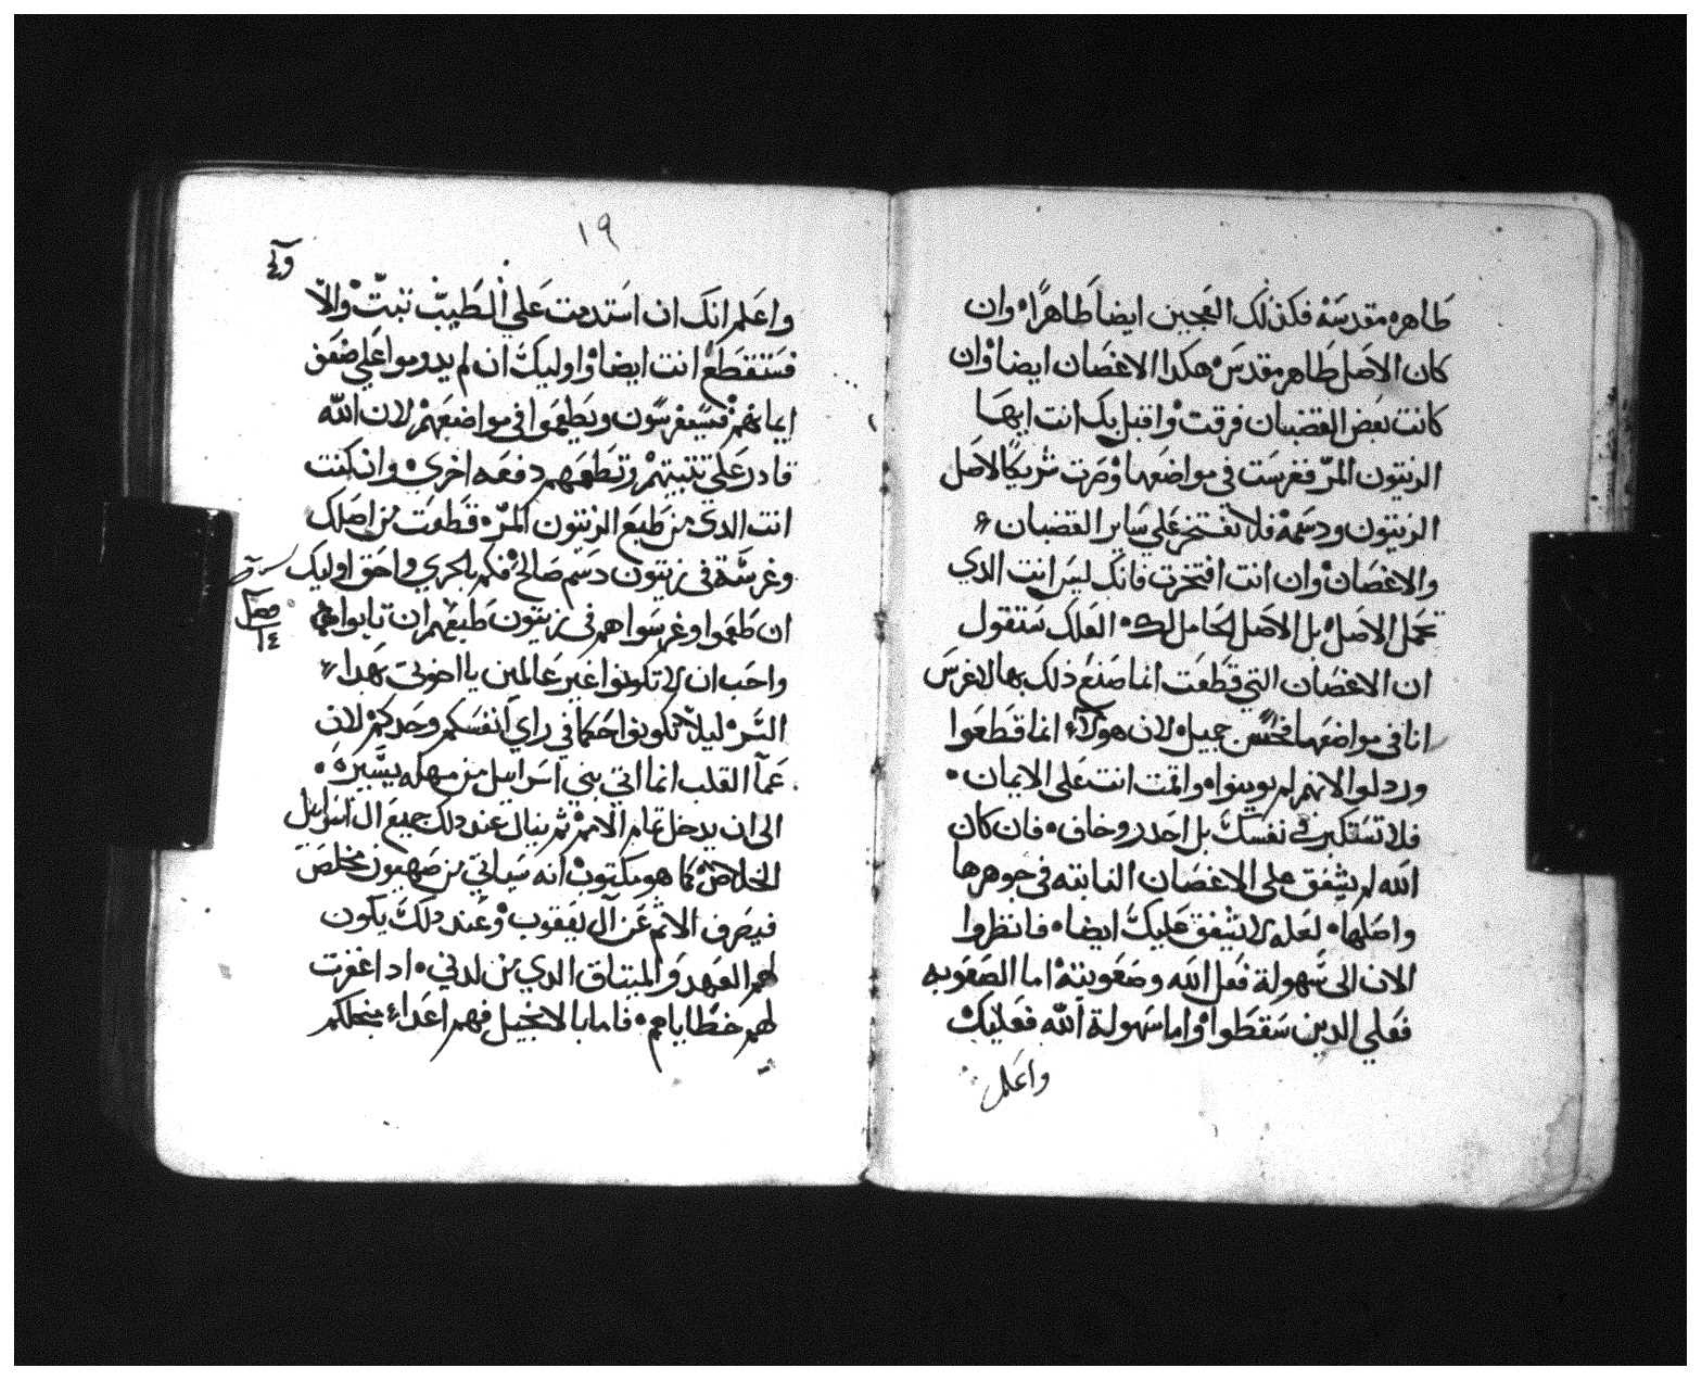 طاهره مقدسة فكذلك العجين ايضا طاهرًا وان
كان الاصل طاهر مقدس هكدا الاغصان ايضا وان
كانت بعض القضبان فرقت واقبل بك انت ايها
الزيتون المرّ فغرست في مواضعها وصرت شريكًا لاصل
الزيتون ودسمة فلا تفتخر علي ساير القضبان
والاغصان وان انت افتخرت فانك ليس انت الدي
تحمل الاصل بل الاصل الحامل لك العلك ستقول
ان الاغصان التي قطعت انما صنع ذلك بها لاغرس
انا في مواضعها فحسن جميل لان هولاء انما قطعوا
وردلوا لانهم لم يومنوا واقمت انت على الايمان
فلا تستكبر في نفسك بل احدر وخاف فان كان
الله لم يشفق علي الاغصان النابته في جوهرها
واصلها لعله لا يشفق عليك ايضا فانظروا
الان الى سهولة فعل الله وصعوبته اما الصعوبه
فعلي الدين سقطوا واما سهولة الله فعليك
واعلم
١٩
واعلم انك ان استدمت علي الطيب تبتّ والا
فستقطع انت ايضا واوليك ان لم يدوموا علي ضعف
ايمانهم فسيغرسون ويطعموا في مواضعهم لان الله
قادر علي تتبيتهم وتطعمهم دفعه اخري وان كنت
انت الدي من طبع الزيتون المرّ قطعت من اصلك
وغرسة في زيتون دسم صالح فكم بالحري واحق اوليك
ان طعموا وغرسوا هم في زيتون طبعهم ان تابوا
فصل
١٤
واحب ان لا تكونوا غير عالمين يا اخوتي بهدا
السر ليلا تكونوا حكما في راي انفسكم وحدكم لان
عمآ القلب انما اتي بني اسراييل من مهكه يسيره
الى ان يدخل تمام الامم ثم ينال عند دلك جميع ال اسراييل
الخلاص كما هو مكتوب انه سياتي من صهيون مخلص
فيصرف الاثم عن آل يعقوب وعند دلك يكون
لهم العهد والميتاق الدي من لدني ادا غفرت
لهم خطاياهم فاما بالانجيل فهم اعداء منجلكم